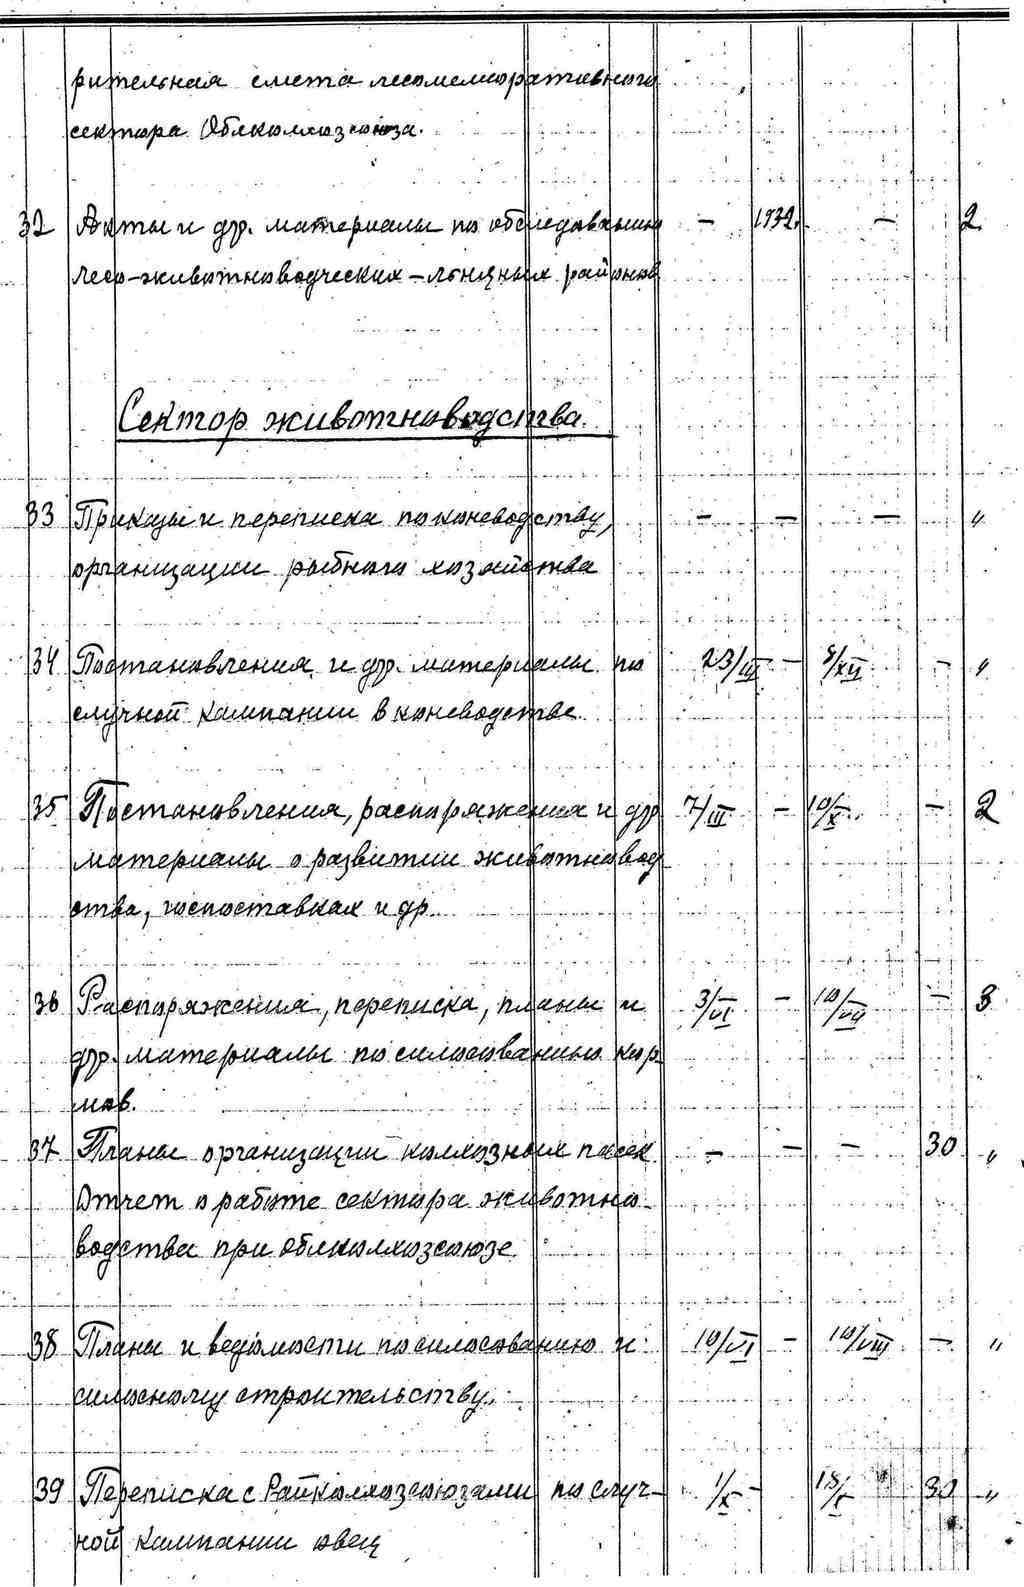 рительная смета лесомелиоративного
сектора Облколхозсоюза.
32 Акты и др. материалы по обследованию — 1932. — 2
лесо-животноводческих-льняных районов
Сектор животноводства.
33 Приказы и переписка по коневодству, — — — "
организации рыбного хозяйства
34 Постановления и др. материалы по 23/III — 5/XII — "
случной кампании в коневодстве.
35 Постановления, распоряжения и др 7/III — 10/X — 2
материалы о развитии животновод
ства, госпоставках и др.
36 Распоряжения, переписка, планы и 3/VI — 10/VIII — 3
др. материалы по силосованию кор
мов.
37 Планы организации колхозных пасек — — — 30 "
Отчет о работе сектора животно-
водства при облколхозсоюзе
38 Планы и ведомости по силосованию и 10/VI — 10/VIII — "
силосному строительству.
39 Переписка с Райколхозсоюзами по случ- 1/X — 15/I 30 "
ной кампании овец